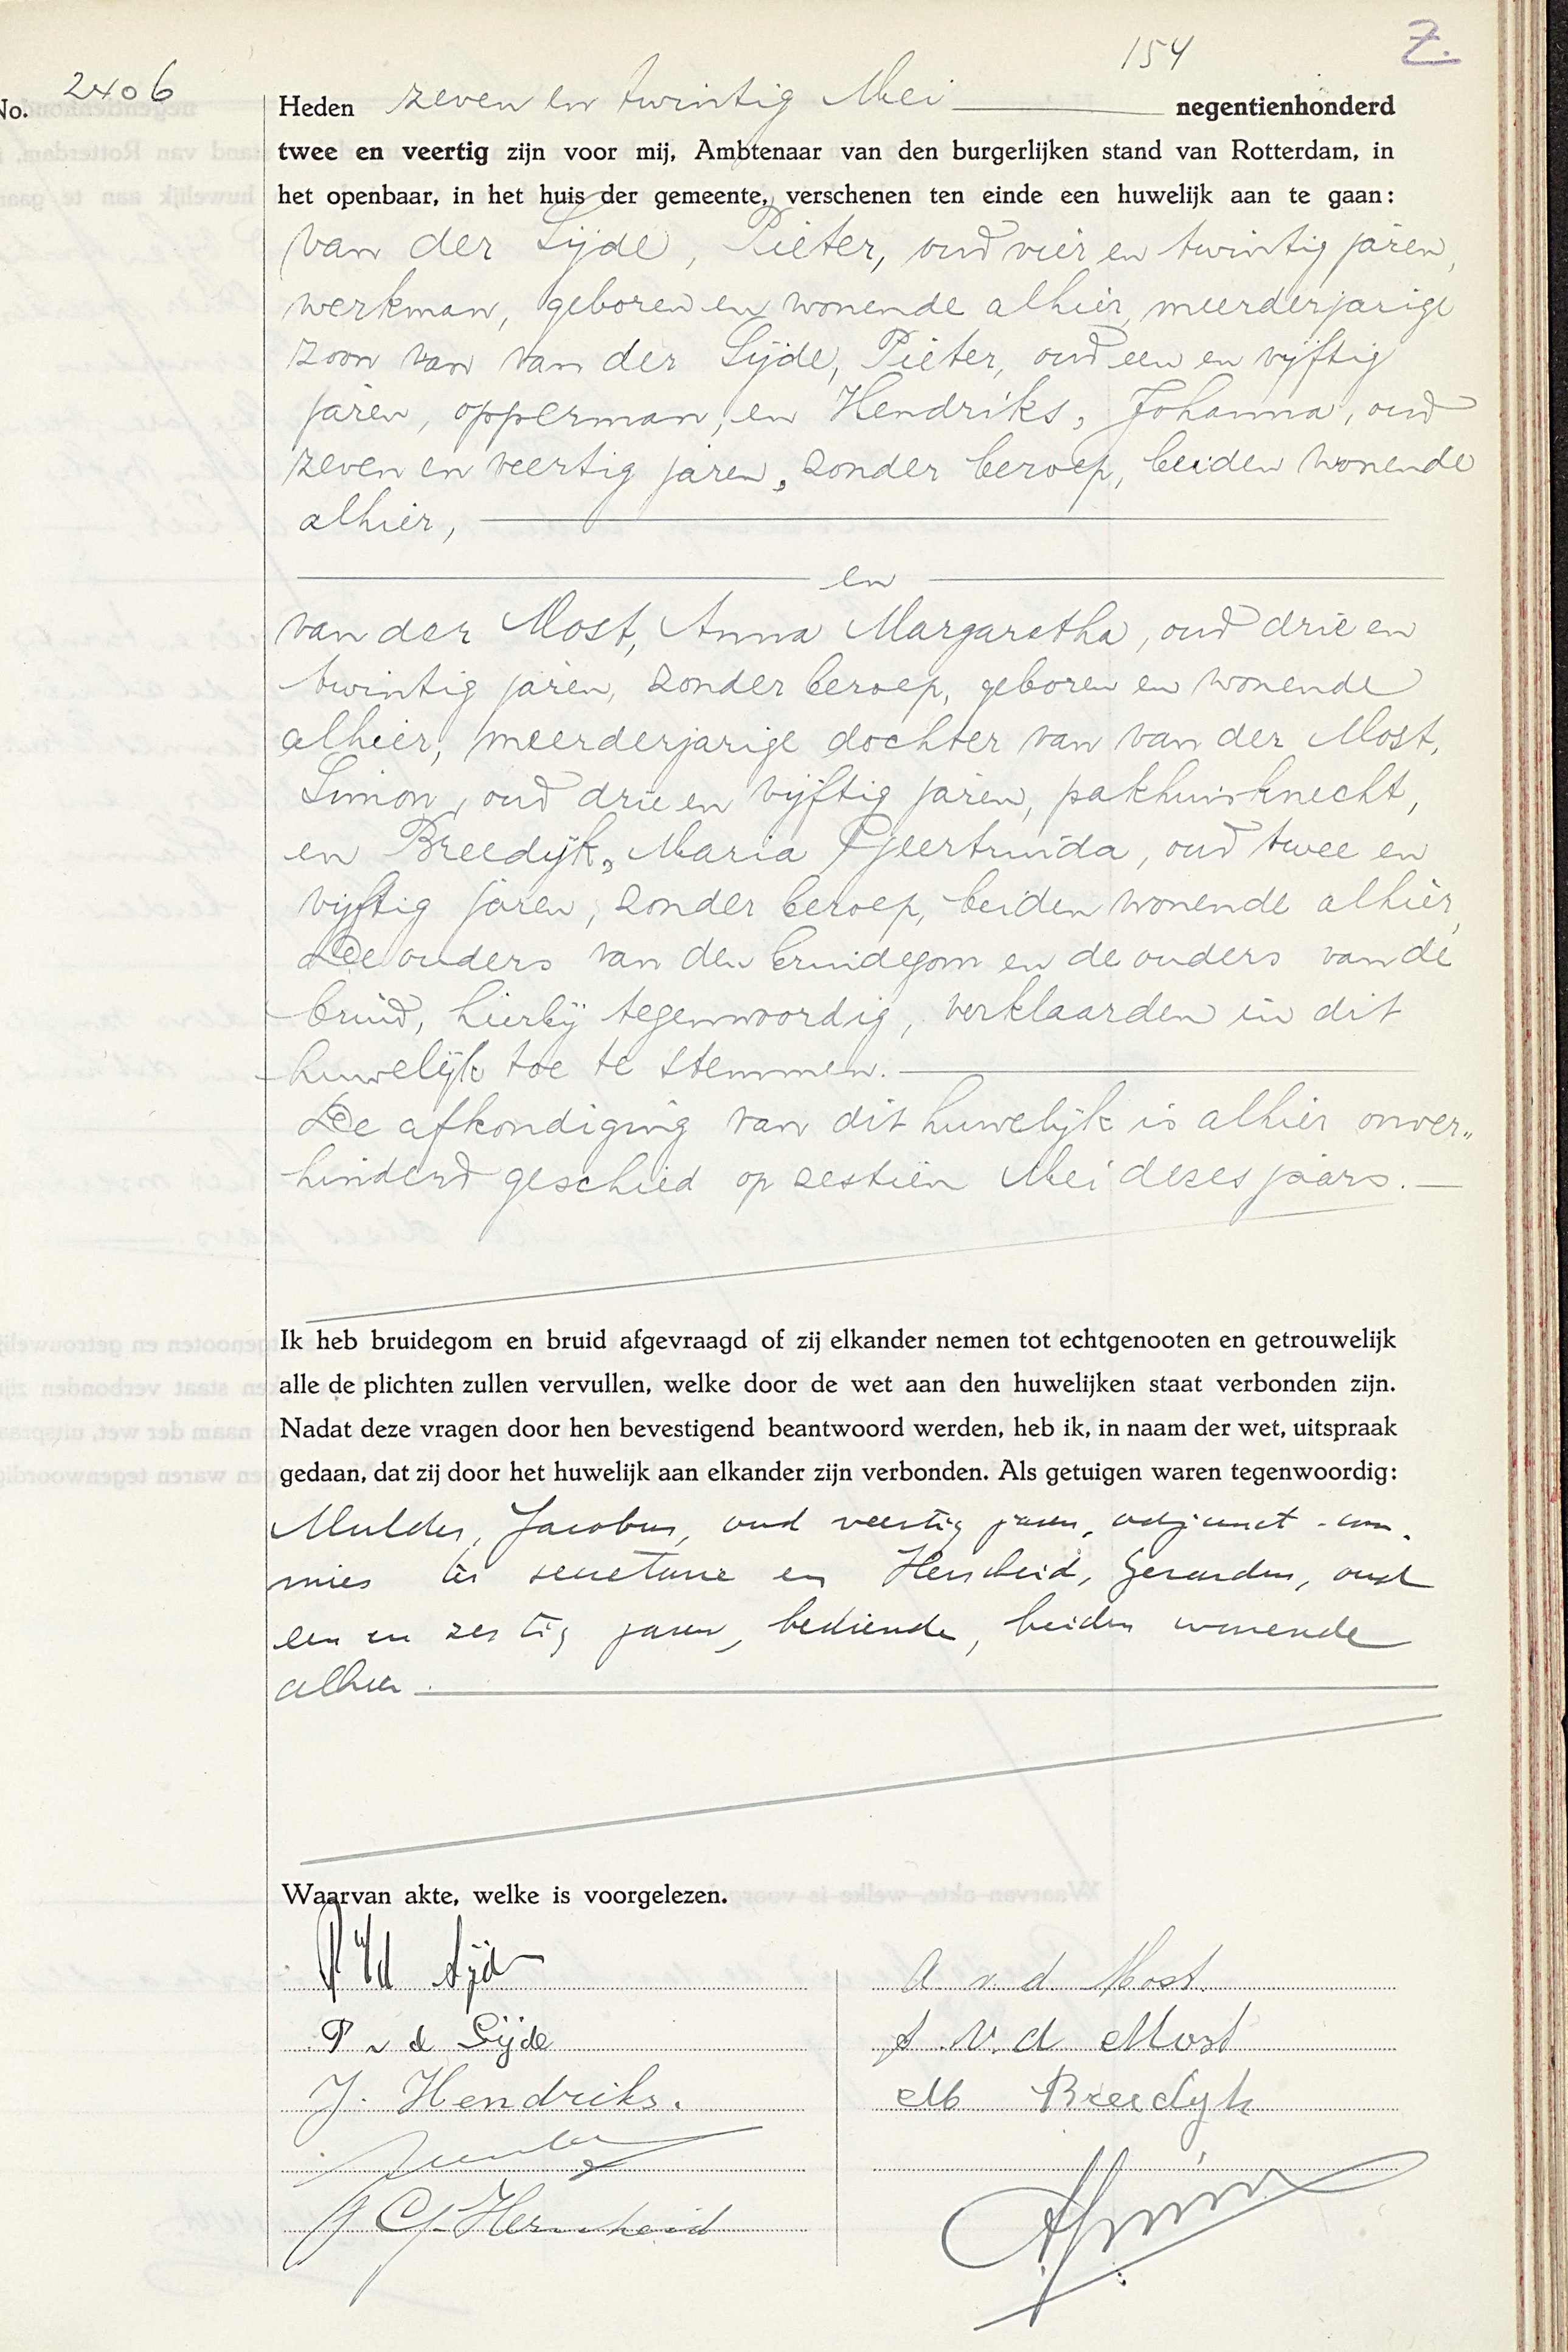 154 Z.
No. 2406
Heden zeven en twintig Mei negentienhonderd
twee en veertig zijn voor mij, Ambtenaar van den burgerlijken stand van Rotterdam, in
het openbaar, in het huis der gemeente, verschenen ten einde een huwelijk aan te gaan:
van der Sijde, Pieter, oud vier en twintig jaren,
werkman, geboren en wonende alhier, meerderjarige
zoon van van der Sijde, Pieter, oud een en vijftig
jaren, opperman, en Hendriks, Johanna, oud
zeven en veertig jaren, zonder beroep, beiden wonende
alhier,
en
van der Most, Anna Margaretha, oud drie en
twintig jaren, zonder beroep, geboren en wonende
alhier, meerderjarige dochter van van der Most,
Simon, oud drie en vijftig jaren, pakhuisknecht,
en Breedijk, Maria Geertruida, oud twee en
vijftig jaren, zonder beroep, beiden wonende alhier,
De ouders van den bruidegom en de ouders van de
bruid, hierbij tegenwoordig, verklaarden in dit
huwelijk toe te stemmen.
De afkondiging van dit huwelijk is alhier onver„
hinderd geschied op zestien Mei dezes jaars.
Ik heb bruidegom en bruid afgevraagd of zij elkander nemen tot echtgenooten en getrouwelijk
alle de plichten zullen vervullen, welke door de wet aan den huwelijken staat verbonden zijn.
Nadat deze vragen door hen bevestigend beantwoord werden, heb ik, in naam der wet, uitspraak
gedaan, dat zij door het huwelijk aan elkander zijn verbonden. Als getuigen waren tegenwoordig:
Mulder, Jacobus, oud veertig jaren, adjunct-com-
mies ter secretarie en Herscheid, Gerardus, oud
een en zestig jaren, bediende, beiden wonende
alhier.
Waarvan akte, welke is voorgelezen.
P vd Sijde
A v. d. Most.
P v d Sijde
S v. d Most
J. Hendriks.
M Breedyk